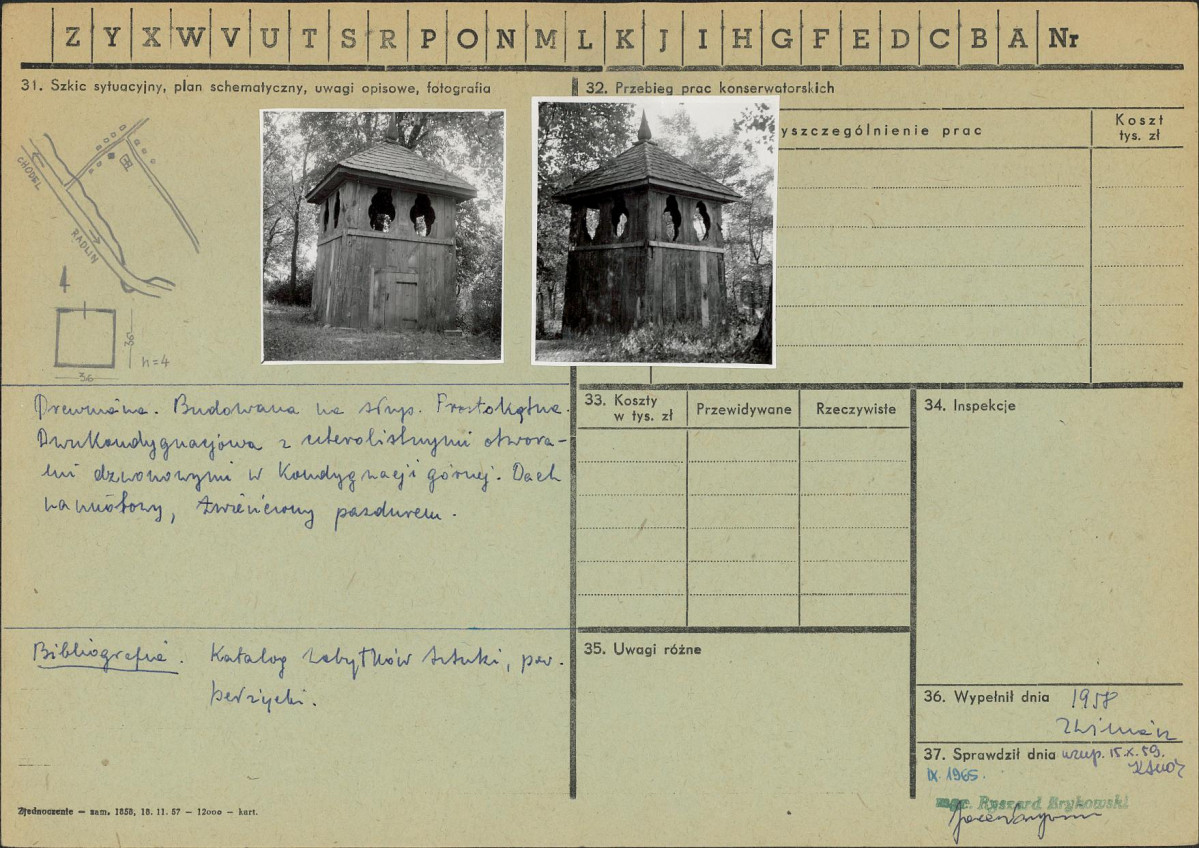 Z Y X W V U T S R P O N M L K J I H G F E D C B A Nr
31. Szkic sytuacyjny, plan schematyczny, uwagi opisowe, fotografia
CHODEL
RADLIN
36
36
h=4
Drewniana. Budowana na słup. Prostokątna.
Dwukondygnacjowa z czterolistnymi otwora-
mi dzwonowymi w kondygnacji górnej. Dach
namiotowy, zwieńczony pazdurem.
Bibliografia. Katalog zabytków sztuki, pow.
bełżycki.
Zjednoczenie — zam. 1858, 18. 11. 57 — 12000 — kart.
32. Przebieg prac konserwatorskich
yszczególnienie prac
Koszt
tys. zł
33. Koszty
w tys. zł
Przewidywane
Rzeczywiste
34. Inspekcje
35. Uwagi różne
36. Wypełnił dnia 1958
37. Sprawdził dnia uzup. 15.X.59.
IX. 1965.
mgr. Ryszard Brykowski